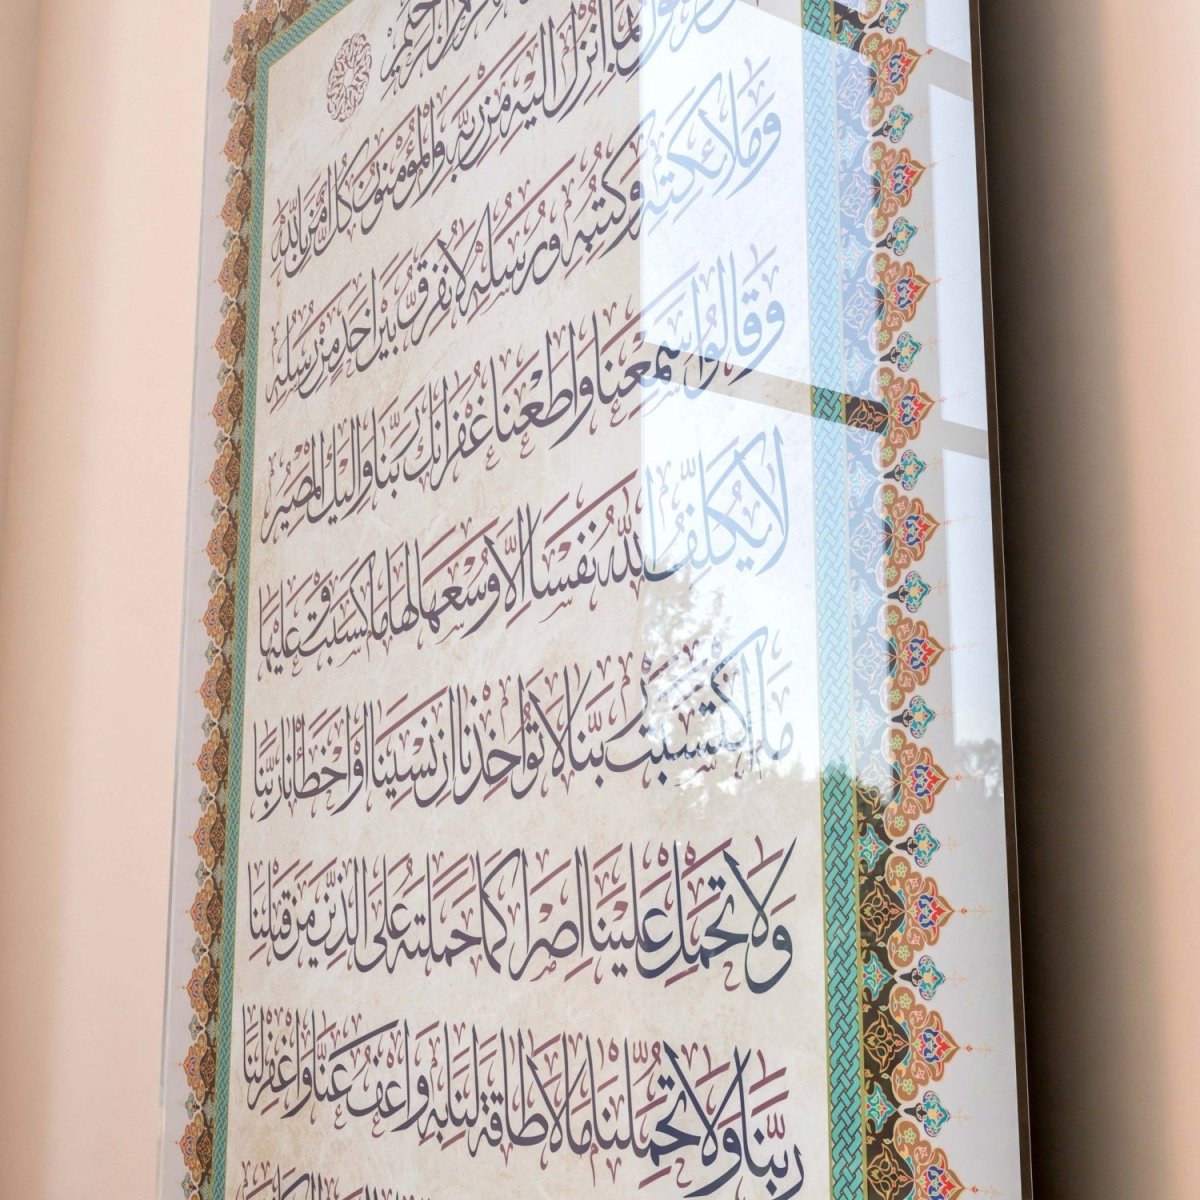 الرحمن الرحيم
الرسول بما انزل اليه من ربه والمؤمنون كل امن بالله
وملائكته وكتبه ورسله لا نفرق بين احد من رسله
وقالوا سمعنا واطعنا غفرانك ربنا واليك المصير
لا يكلف الله نفسا الا وسعها لها ما كسبت وعليها
ما اكتسبت ربنا لا تؤاخذنا ان نسينا او اخطأنا ربنا
ولا تحمل علينا اصرا كما حملته على الذين من قبلنا
ربنا ولا تحملنا ما لا طاقة لنا به واعف عنا واغفر لنا